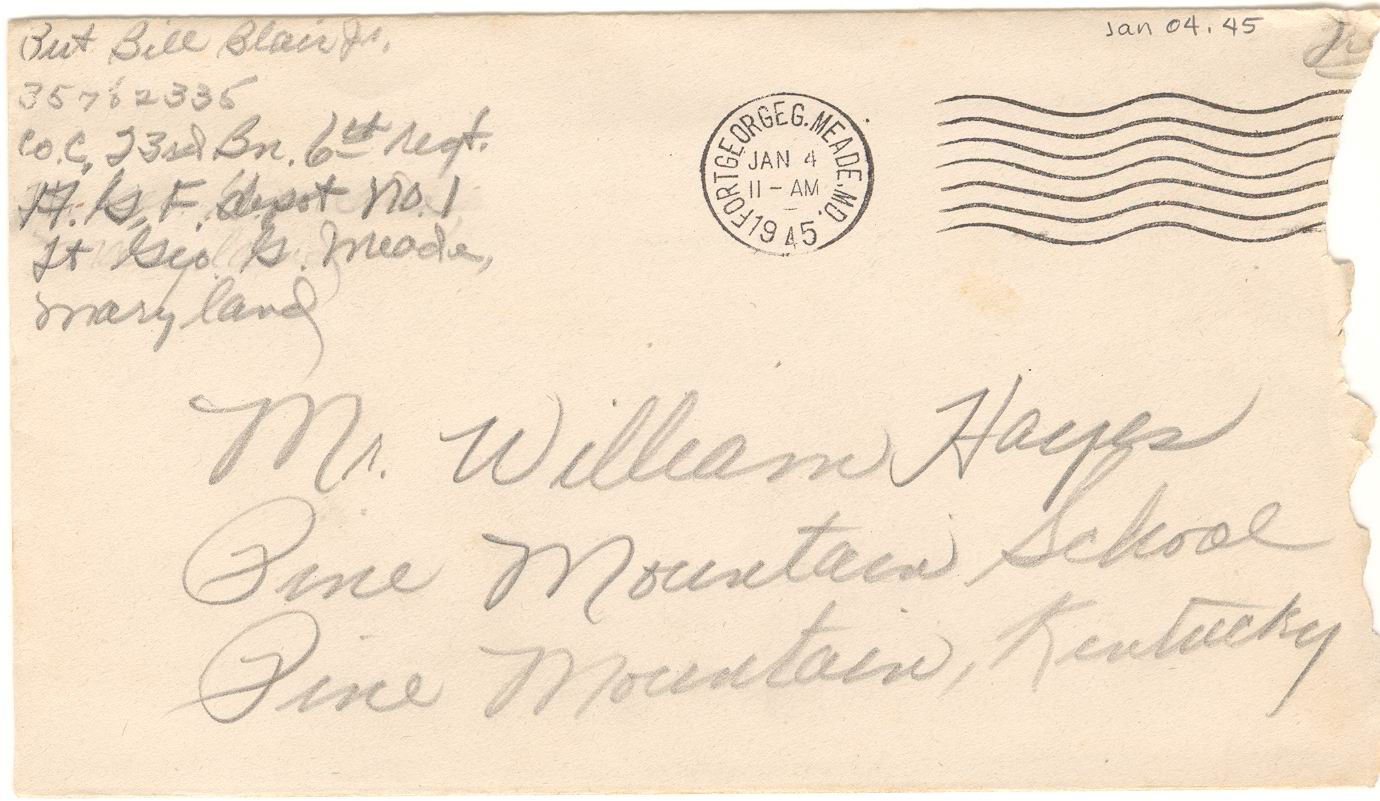 Pvt Bill Blair Jr.
35782335
Co. C, 23rd Bn. 6th regt.
A. G. F. depot No. 1
Ft Geo. G. Meade,
Maryland
Jan 04. 45
FORT GEORGE G. MEADE, MD.
JAN 4
11 - AM
1945
Mr. William Hayes
Pine Mountain School
Pine Mountain, Kentucky